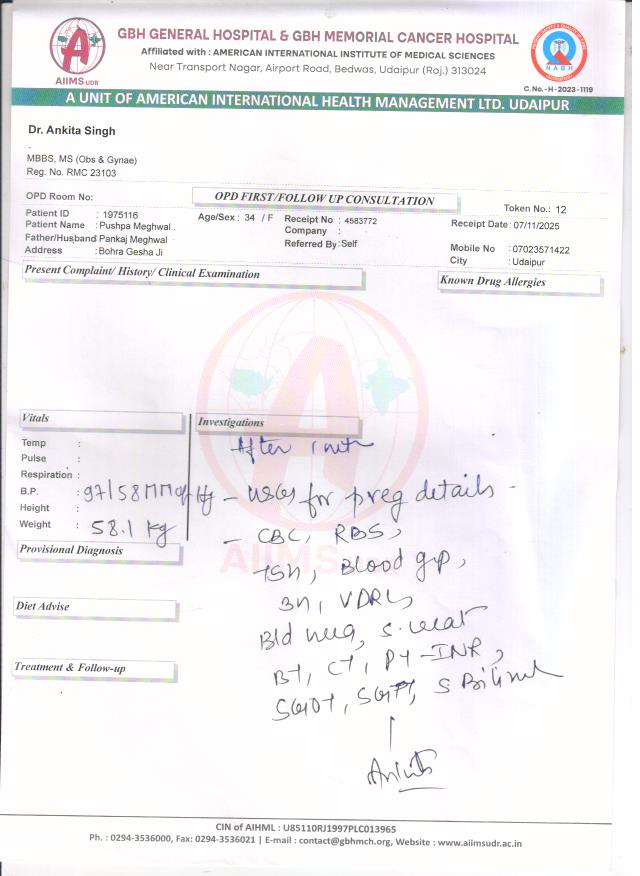 GBH GENERAL HOSPITAL & GBH MEMORIAL CANCER HOSPITAL
Affiliated with : AMERICAN INTERNATIONAL INSTITUTE OF MEDICAL SCIENCES
Near Transport Nagar, Airport Road, Bedwas, Udaipur (Raj.) 313024
AIIMS.UDR
NABH
C. No. - H - 2023 - 1119
A UNIT OF AMERICAN INTERNATIONAL HEALTH MANAGEMENT LTD. UDAIPUR
Dr. Ankita Singh
MBBS, MS (Obs & Gynae)
Reg. No. RMC 23103
OPD Room No:
OPD FIRST/FOLLOW UP CONSULTATION
Token No.: 12
Patient ID : 1975116
Age/Sex : 34 / F
Receipt No : 4583772
Receipt Date : 07/11/2025
Patient Name : Pushpa Meghwal .
Company :
Father/Husband : Pankaj Meghwal
Referred By : Self
Mobile No : 07023571422
Address : Bohra Gesha Ji
City : Udaipur
Present Complaint/ History/ Clinical Examination
Known Drug Allergies
Vitals
Investigations
Temp :
After
Pulse :
Respiration :
B.P. : 97/58 MMof Hg
- USG for preg details -
Height :
Weight : 58.1 kg
- CBC, RBS,
AIIMS.UDR
Provisional Diagnosis
TSH, Blood grp,
VDRL,
Diet Advise
Bld urea, S. creat
Treatment & Follow-up
BT, CT, PT-INR,
SGOT, SGPT, S Bilirubin
Ankita
CIN of AIHML : U85110RJ1997PLC013965
Ph. : 0294-3536000, Fax: 0294-3536021 | E-mail : contact@gbhmch.org, Website : www.aiimsudr.ac.in